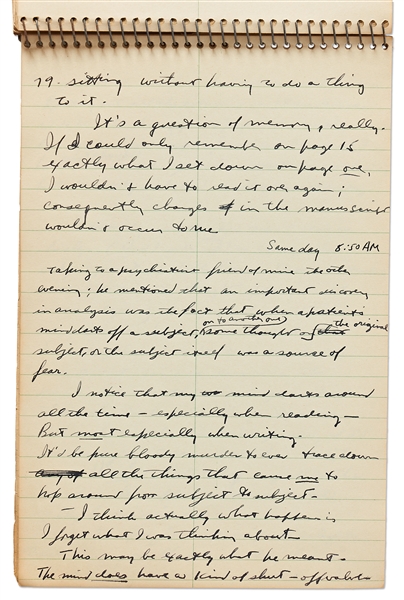 79. sitting without having to do a thing
to it.
It's a question of memory, really.
If I could only remember on page 15
exactly what I set down on page one,
I wouldn't have to read it over again;
consequently changes in the manuscript
wouldn't occur to me
Same day 8:50 AM
Talking to a psychiatrist friend of mine the other
evening; he mentioned that an important discovery
in analysis was the fact that when a patients
mind darts off a subject, on to another one, some thought of the original
subject, or the subject itself was a source of
fear.
I notice that my mind darts around
all the time – especially when reading –
But most especially when writing.
It'd be pure bloody murder to ever trace down
all the things that cause me to
hop around from subject to subject –
– I think actually what happens is
I forget what I was thinking about –
This may be exactly what he meant –
The mind does have a kind of shut-off valve